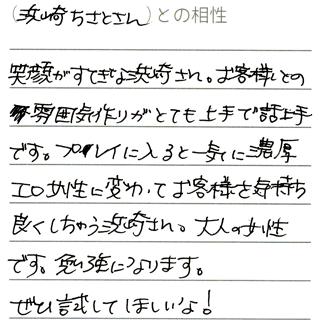 (浜崎ちさとさん)との相性
笑顔がすてきな浜崎さん。お客様との
雰囲気作りがとても上手で話上手
です。プレイに入ると一気に濃厚
エロ女性に変わってお客様を気持ち
良くしちゃう浜崎さん。大人の女性
です。勉強になります。
ぜひ試してほしいな!